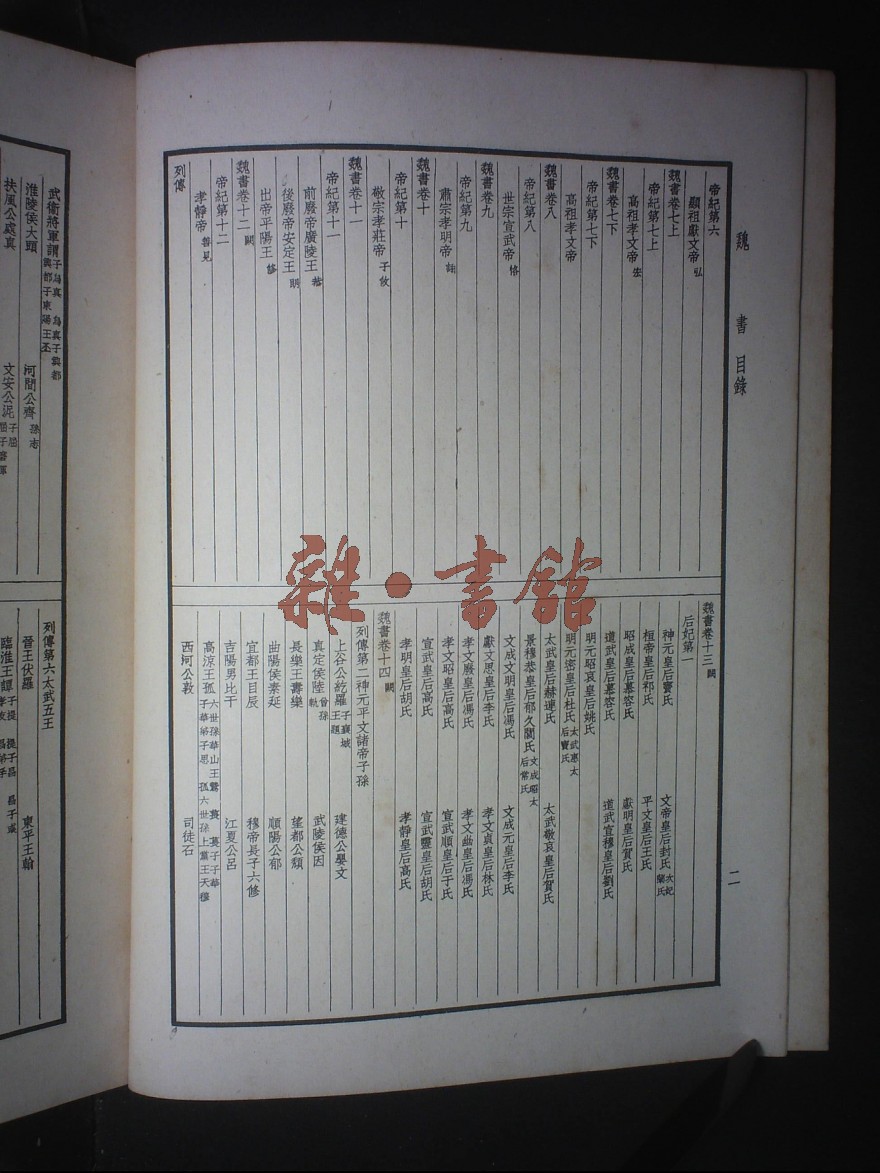 魏書目錄
二
帝紀第六
顯祖獻文帝 弘
魏書卷七上
帝紀第七上
高祖孝文帝 宏
魏書卷七下
帝紀第七下
高祖孝文帝
魏書卷八
帝紀第八
世宗宣武帝 恪
魏書卷九
帝紀第九
肅宗孝明帝 詡
魏書卷十
帝紀第十
敬宗孝莊帝 子攸
魏書卷十一
帝紀第十一
前廢帝廣陵王 恭
後廢帝安定王 朗
出帝平陽王 脩
魏書卷十二 闕
帝紀第十二
孝靜帝 善見
列傳
魏書卷十三 闕
后妃第一
神元皇后竇氏 文帝皇后封氏 次妃蘭氏
桓帝皇后祁氏 平文皇后王氏
昭成皇后慕容氏 獻明皇后賀氏
道武皇后慕容氏 道武宣穆皇后劉氏
明元昭哀皇后姚氏
明元密皇后杜氏 太武惠太后竇氏
太武皇后赫連氏 太武敬哀皇后賀氏
景穆恭皇后郁久閭氏 文成昭太后常氏
文成文明皇后馮氏 文成元皇后李氏
獻文思皇后李氏 孝文貞皇后林氏
孝文廢皇后馮氏 孝文幽皇后馮氏
孝文昭皇后高氏 宣武順皇后于氏
宣武皇后高氏 宣武靈皇后胡氏
孝明皇后胡氏 孝靜皇后高氏
魏書卷十四 闕
列傳第二神元平文諸帝子孫
上谷公紇羅 子襄城王題 建德公嬰文
真定侯陸 曾孫軌 武陵侯因
長樂王壽樂 望都公頹
曲陽侯素延 順陽公郁
宜都王目辰 穆帝長子六脩
吉陽男比干 江夏公呂
高涼王孤 六世孫華山王鷙 子華弟子思 孤六世孫上黨王天穆
西河公敦 司徒石
武衞將軍謂 子烏真 烏真子興都 興都子東陽王丕
淮陵侯大頭 河間公齊 孫志
扶風公處真 文安公泥 子屈
列傳第六太武五王
晉王伏羅 東平王翰
臨淮王譚 子提 提子昌 昌子彧